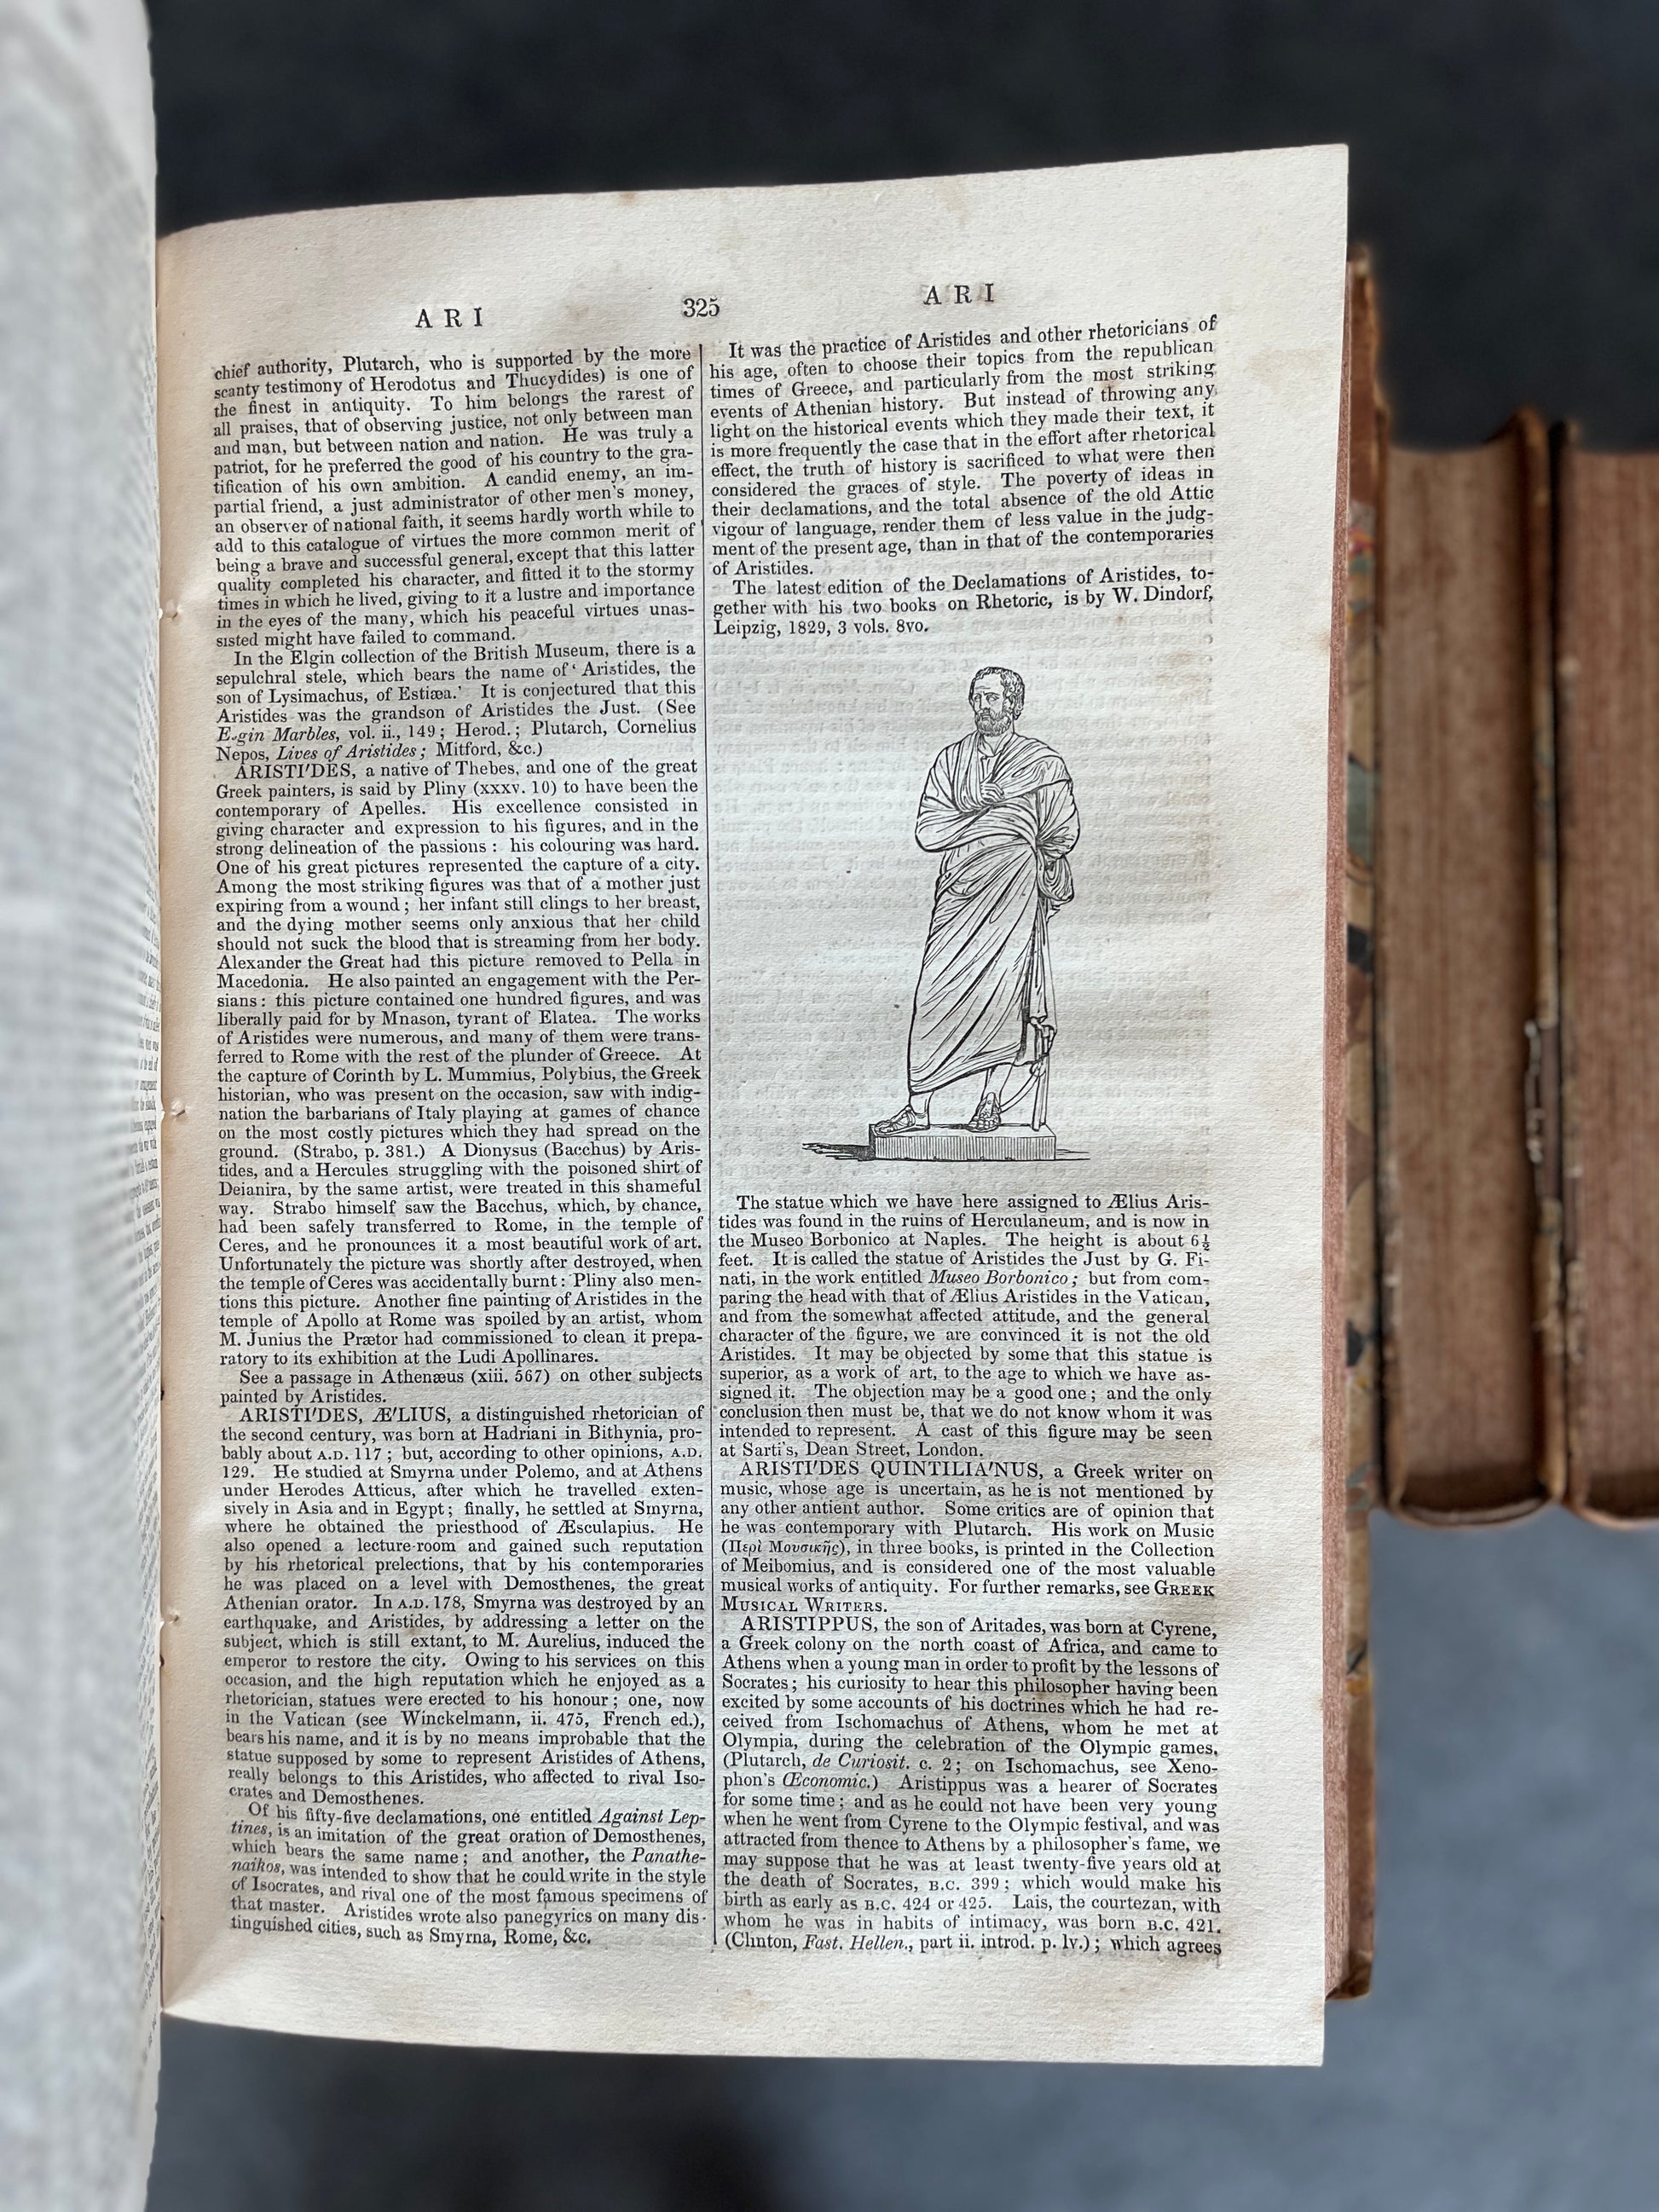 ARI
325
ARI
chief authority, Plutarch, who is supported by the more
scanty testimony of Herodotus and Thucydides) is one of
the finest in antiquity. To him belongs the rarest of
all praises, that of observing justice, not only between man
and man, but between nation and nation. He was truly a
patriot, for he preferred the good of his country to the gra-
tification of his own ambition. A candid enemy, an im-
partial friend, a just administrator of other men's money,
an observer of national faith, it seems hardly worth while to
add to this catalogue of virtues the more common merit of
being a brave and successful general, except that this latter
quality completed his character, and fitted it to the stormy
times in which he lived, giving to it a lustre and importance
in the eyes of the many, which his peaceful virtues unas-
sisted might have failed to command.
In the Elgin collection of the British Museum, there is a
sepulchral stele, which bears the name of ' Aristides, the
son of Lysimachus, of Estiæa.' It is conjectured that this
Aristides was the grandson of Aristides the Just. (See
E.gin Marbles, vol. ii., 149; Herod.; Plutarch, Cornelius
Nepos, Lives of Aristides; Mitford, &c.)
ARISTI'DES, a native of Thebes, and one of the great
Greek painters, is said by Pliny (xxxv. 10) to have been the
contemporary of Apelles. His excellence consisted in
giving character and expression to his figures, and in the
strong delineation of the passions: his colouring was hard.
One of his great pictures represented the capture of a city.
Among the most striking figures was that of a mother just
expiring from a wound; her infant still clings to her breast,
and the dying mother seems only anxious that her child
should not suck the blood that is streaming from her body.
Alexander the Great had this picture removed to Pella in
Macedonia. He also painted an engagement with the Per-
sians: this picture contained one hundred figures, and was
liberally paid for by Mnason, tyrant of Elatea. The works
of Aristides were numerous, and many of them were trans-
ferred to Rome with the rest of the plunder of Greece. At
the capture of Corinth by L. Mummius, Polybius, the Greek
historian, who was present on the occasion, saw with indig-
nation the barbarians of Italy playing at games of chance
on the most costly pictures which they had spread on the
ground. (Strabo, p. 381.) A Dionysus (Bacchus) by Aris-
tides, and a Hercules struggling with the poisoned shirt of
Deianira, by the same artist, were treated in this shameful
way. Strabo himself saw the Bacchus, which, by chance,
had been safely transferred to Rome, in the temple of
Ceres, and he pronounces it a most beautiful work of art.
Unfortunately the picture was shortly after destroyed, when
the temple of Ceres was accidentally burnt: Pliny also men-
tions this picture. Another fine painting of Aristides in the
temple of Apollo at Rome was spoiled by an artist, whom
M. Junius the Prætor had commissioned to clean it prepa-
ratory to its exhibition at the Ludi Apollinares.
See a passage in Athenæus (xiii. 567) on other subjects
painted by Aristides.
ARISTI'DES, Æ'LIUS, a distinguished rhetorician of
the second century, was born at Hadriani in Bithynia, pro-
bably about A.D. 117; but, according to other opinions, A.D.
129. He studied at Smyrna under Polemo, and at Athens
under Herodes Atticus, after which he travelled exten-
sively in Asia and in Egypt; finally, he settled at Smyrna,
where he obtained the priesthood of Æsculapius. He
also opened a lecture-room and gained such reputation
by his rhetorical prelections, that by his contemporaries
he was placed on a level with Demosthenes, the great
Athenian orator. In A.D. 178, Smyrna was destroyed by an
earthquake, and Aristides, by addressing a letter on the
subject, which is still extant, to M. Aurelius, induced the
emperor to restore the city. Owing to his services on this
occasion, and the high reputation which he enjoyed as a
rhetorician, statues were erected to his honour; one, now
in the Vatican (see Winckelmann, ii. 475, French ed.),
bears his name, and it is by no means improbable that the
statue supposed by some to represent Aristides of Athens,
really belongs to this Aristides, who affected to rival Iso-
crates and Demosthenes.
Of his fifty-five declamations, one entitled Against Lep-
tines, is an imitation of the great oration of Demosthenes,
which bears the same name; and another, the Panathe-
naikos, was intended to show that he could write in the style
of Isocrates, and rival one of the most famous specimens of
that master. Aristides wrote also panegyrics on many dis-
tinguished cities, such as Smyrna, Rome, &c.
It was the practice of Aristides and other rhetoricians of
his age, often to choose their topics from the republican
times of Greece, and particularly from the most striking
events of Athenian history. But instead of throwing any
light on the historical events which they made their text, it
is more frequently the case that in the effort after rhetorical
effect, the truth of history is sacrificed to what were then
considered the graces of style. The poverty of ideas in
their declamations, and the total absence of the old Attic
vigour of language, render them of less value in the judg-
ment of the present age, than in that of the contemporaries
of Aristides.
The latest edition of the Declamations of Aristides, to-
gether with his two books on Rhetoric, is by W. Dindorf,
Leipzig, 1829, 3 vols. 8vo.
The statue which we have here assigned to Ælius Aris-
tides was found in the ruins of Herculaneum, and is now in
the Museo Borbonico at Naples. The height is about 6½
feet. It is called the statue of Aristides the Just by G. Fi-
nati, in the work entitled Museo Borbonico; but from com-
paring the head with that of Ælius Aristides in the Vatican,
and from the somewhat affected attitude, and the general
character of the figure, we are convinced it is not the old
Aristides. It may be objected by some that this statue is
superior, as a work of art, to the age to which we have as-
signed it. The objection may be a good one; and the only
conclusion then must be, that we do not know whom it was
intended to represent. A cast of this figure may be seen
at Sarti's, Dean Street, London.
ARISTI'DES QUINTILIA'NUS, a Greek writer on
music, whose age is uncertain, as he is not mentioned by
any other antient author. Some critics are of opinion that
he was contemporary with Plutarch. His work on Music
(Περὶ Μουσικῆς), in three books, is printed in the Collection
of Meibomius, and is considered one of the most valuable
musical works of antiquity. For further remarks, see GREEK
MUSICAL WRITERS.
ARISTIPPUS, the son of Aritades, was born at Cyrene,
a Greek colony on the north coast of Africa, and came to
Athens when a young man in order to profit by the lessons of
Socrates; his curiosity to hear this philosopher having been
excited by some accounts of his doctrines which he had re-
ceived from Ischomachus of Athens, whom he met at
Olympia, during the celebration of the Olympic games.
(Plutarch, de Curiosit. c. 2; on Ischomachus, see Xeno-
phon's Œconomic.) Aristippus was a hearer of Socrates
for some time; and as he could not have been very young
when he went from Cyrene to the Olympic festival, and was
attracted from thence to Athens by a philosopher's fame, we
may suppose that he was at least twenty-five years old at
the death of Socrates, B.C. 399; which would make his
birth as early as B.C. 424 or 425. Lais, the courtezan, with
whom he was in habits of intimacy, was born B.C. 421.
(Clinton, Fast. Hellen., part ii. introd. p. lv.); which agrees